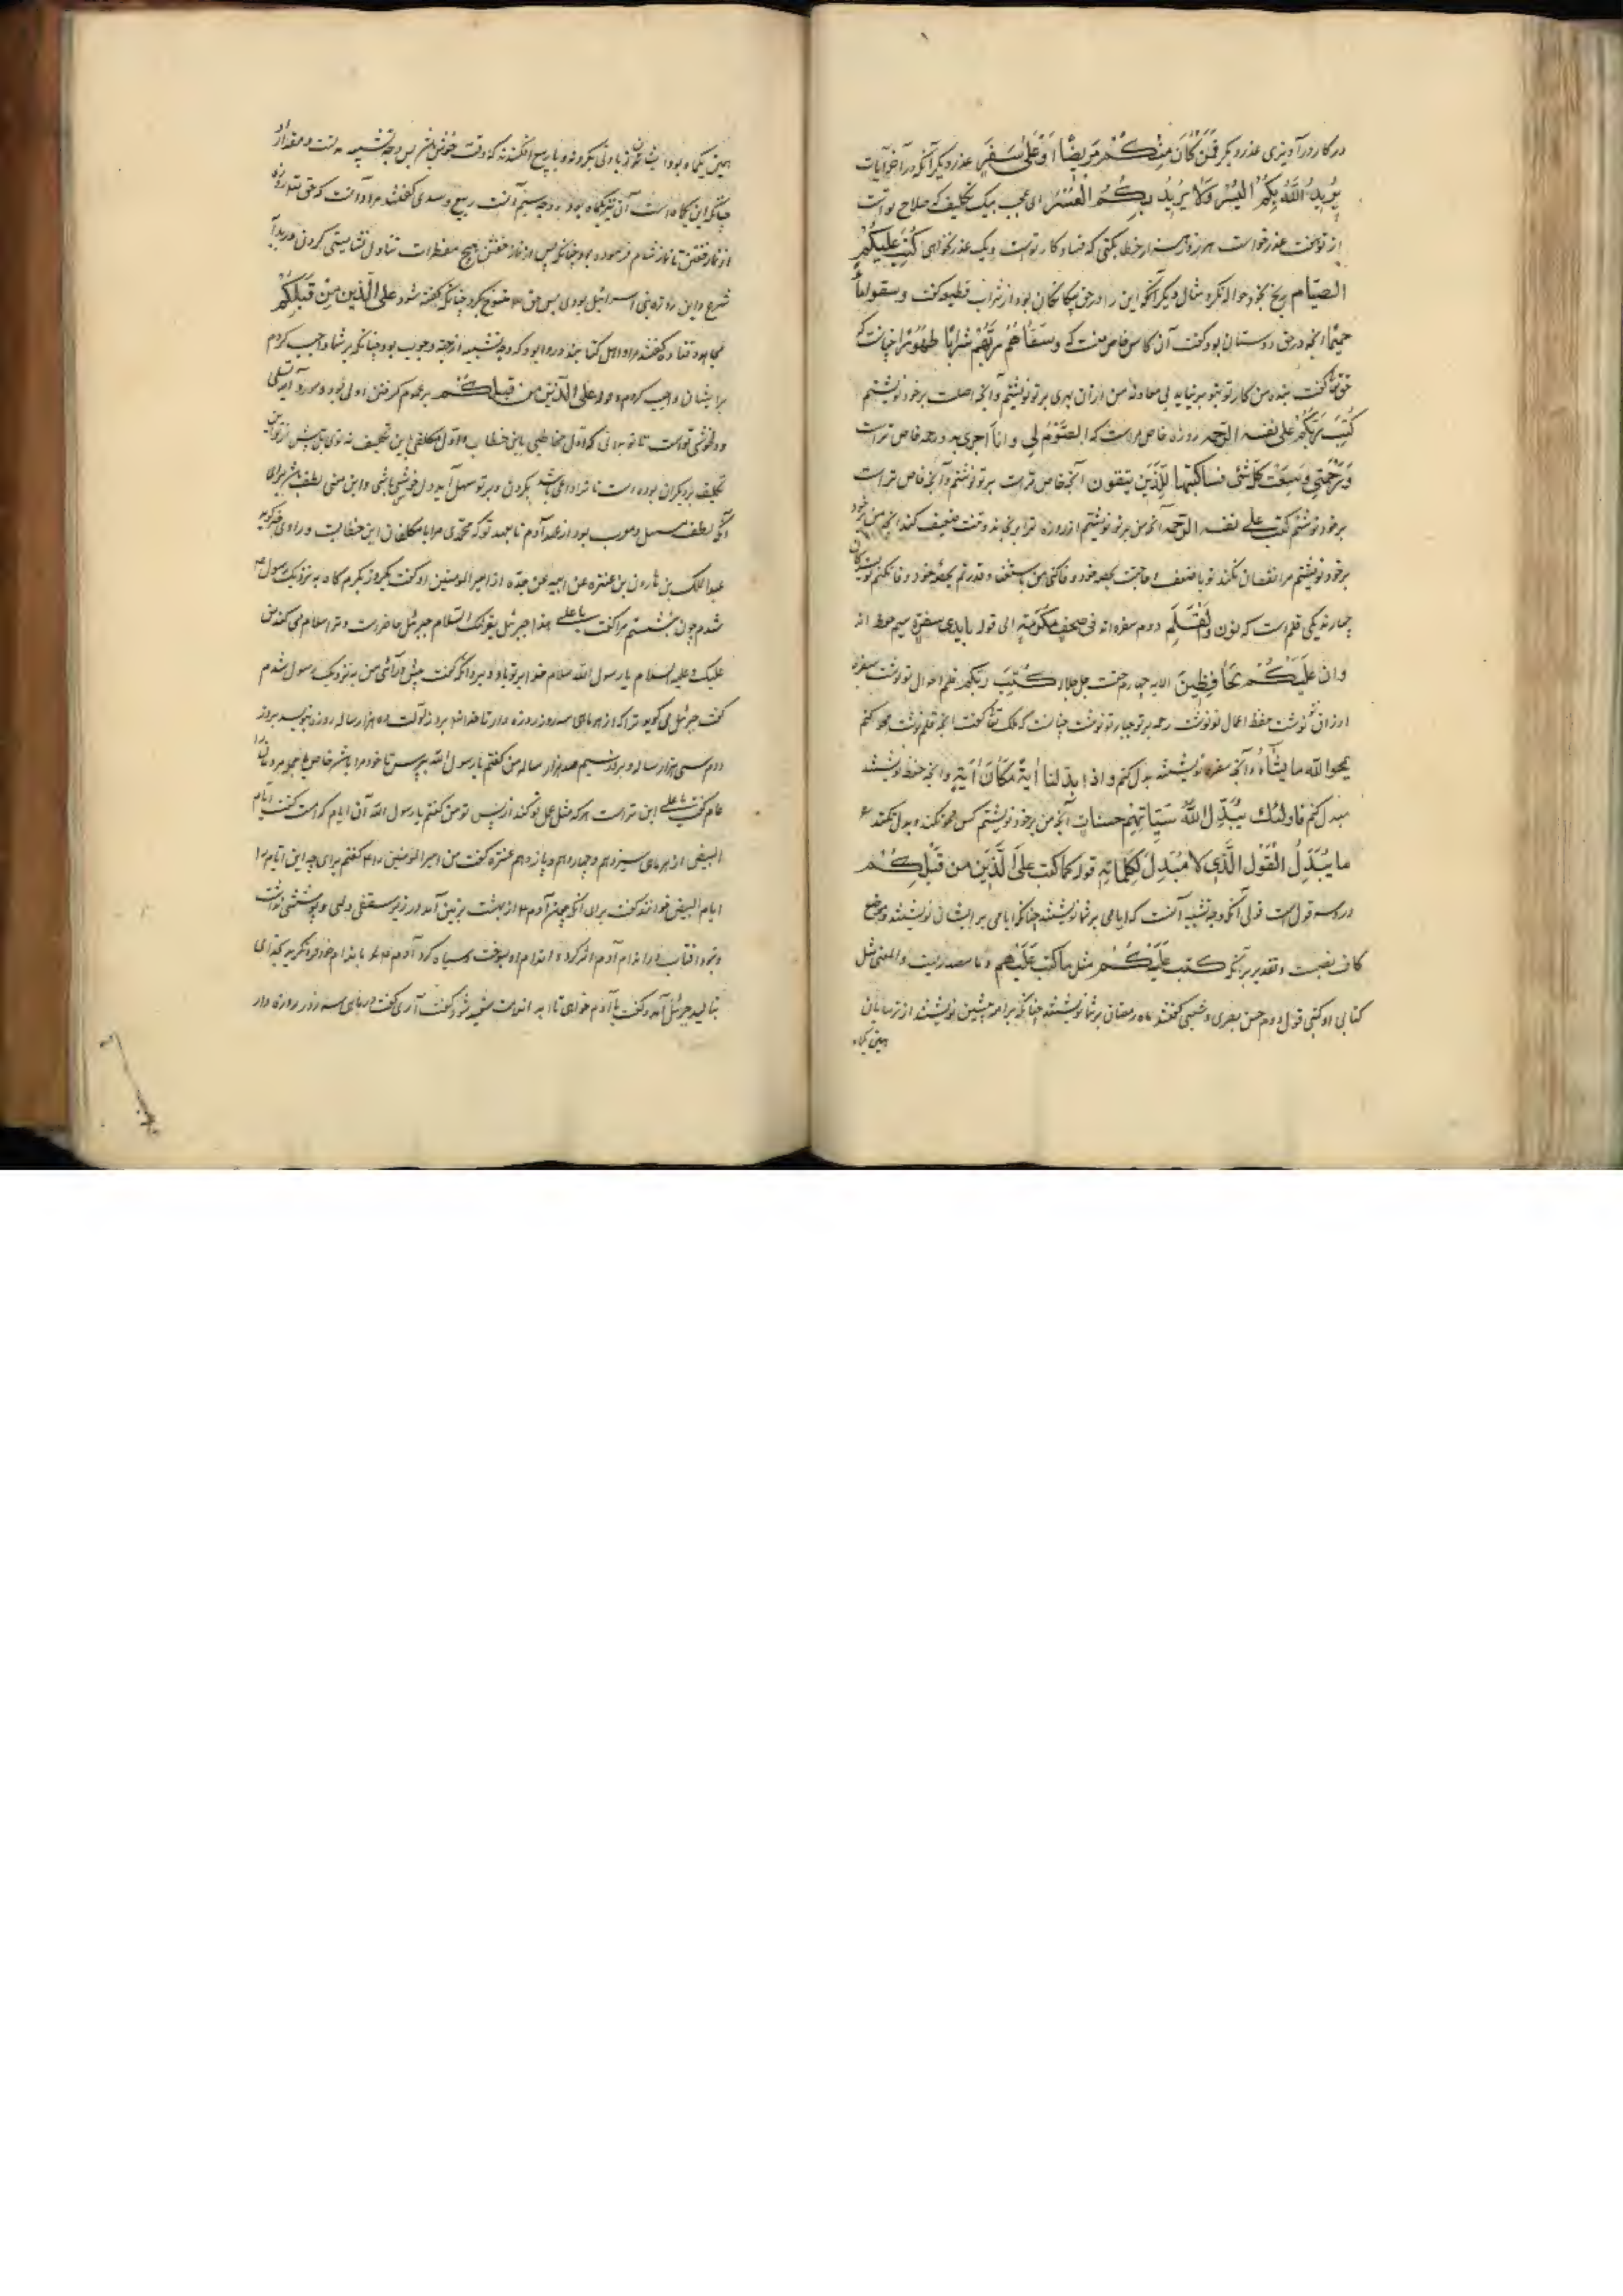 در کار در آویزی عذر دیگر فَمَنْ كَانَ مِنْكُمْ مَرِيضًا اَوْ عَلى سَفَرٍ عذر دیگر آنکه در آخر آیات
يُرِيدُ اللّٰهُ بِكُمُ الْيُسْرَ وَلَا يُرِيدُ بِكُمُ الْعُسْرَ ای عجب بیک تکلیف که صلاح تو است
از تو عذر خواست هزار خطا بکنی که فساد کار تو است و یک عذر نخواهی كُتِبَ عَلَيْكُمُ
الصّيَام رنج بخود حواله نکرد مثال دیگر آنکه این را در حق بیگانگان بود از شراب قطیعه گفت وسقوا ماءً
حميمًا آنچه در حق دوستان بود گفت آن کاس خاص منست که وَسَقٰاهُمْ رَبُّهُمْ شَرابًا طَهُورًا
حق تعا گفت بنده من کار تو بتو بر نیاید بی معاونة من از آن بهری بر تو نوشتم و آنچه اصلست بر خود نوشتم
كَتَبَ رَبُّكُمْ عَلى نفسه الرّحمه روزه خاص مراست که الصَّوْمُ لِي وانا اَجزی به و رحمه خاص تراست
وَرَحْمَتِي وَسِعَتْ كُلَّ شَيْءٍ فسأكتبها لِلَّذِينَ يتقون آنچه خاص تراست بر تو نوشتم و آنچه خاص تراست
بر خود نوشتم كتب على نفسه الرّحمه آنچه من بر تو نوشتم از روزه ترا برنجاند و تنت ضعیف کند آنچه من
بر خود نوشتم مرا نقصان نکند تو با ضعف و حاجت بعهد خود وفا کنی من با استغنا و قدرتم بعهد خود وفا نکنم
چهارند یکی قلم است که نون وَالْقَلَمِ دوم سفره اند فی صحف مكرّمة الی قوله بایدی سفرة سیم حفظه اند
وان عَلَيْكُمْ لَحٰافِظِينَ الایه چهارم حقست جل جلاله كَتَبَ ربكم قلم احوال تو نوشت سفره
نوشت حفظه اعمال تو نوشت رحمه بر تو جبار تو نوشت چنانست که ملک تعا گفت آنچه قلم نوشت محو کنم
يمحوا الله ما يشاء و آنچه سفره نوشتند بدل کنم واذا بدّلنا اٰيةً مَكانَ اٰيَةٍ و آنچه حفظه نوشتند
مبدل کنم فاولئك يُبَدِّلُ اللّٰهُ سَيِّئاتِهِمْ حسنات آنچه من بر خود نوشتم کس محو نکند و بدل نکند
ما يُبَدَّلُ الْقَوْلُ الَّذِي لا مُبَدِّلَ لِكَلِماتِهِ قوله كما كتب عَلَى الَّذِينَ من قَبْلِكُمْ
درو سه قولست قولی آنکه وجه تشبیه آنست که ایامی بر شما نوشتند چنانکه ایامی بر ایشان نوشتند و موضع
کاف نصبست و تقدیر بر آنکه كتب عَلَيْكُمْ مثل ما كتب عَلَيْهِم و ما مصدریست والمعنی مثل
کتابی او کتبی قول دوم حسن بصری و شعبی گفتند ماه رمضان بر شما نوشتند چنانکه بر امه پیشین نوشتند از ترسایان
همین یکماه
همین یکماه بود ایشان از آن زیادتی بکردند و با ربیع افگندند که وقت خوش باشد پس وجه تشبیه در مقدار
چنانکه این یکماه است آن نیز یکماه بود و وجه سیم آنست ربیع و سدی گفتند مراد آنست که حق تعا روزه
از نماز خفتن تا نماز شام فرموده بود چنانکه پس از نماز خفتن هیچ مفطرات تناول نشایستی کردن
شرع و این روزه بنی اسرائیل بودی پس حق تعا منسوخ بکرد چنانکه گفته شود على الّذين مِنْ قَبْلِكُمْ
مجاهد و قتاده گفتند مراد اهل کتابند و روا بود که وجه تشبیه از جهة وجوب بود چنانکه بر شما واجب کردم
بر ایشان واجب کردم و على الّذين من قبلكُم بر عموم گرفتن اولی بود و مورد آیه تسلی
و دلخوشی تو است تا تو برانی که اول مخاطبی باین خطاب و اول مکلفی باین تکلیف نه توی پیش از تو این
تکلیف بر دیگران بوده است تا ترا داعی باشد بکردن و بر تو سهل آید و دل خوش باشی و این معنی لطف باشد برای
آنکه لطف مسهل و مقرب بود از عهد آدم تا بعهد تو که محمدی مرا با مکلفان این خطابست و راوی خبر گوید
عبد الملک بن هارون بن عنتره عن ابیه عن جده از امیر المومنین او گفت یکروز بگرم گاه به نزدیک رسول
شدم چون بنشستم مرا گفت یا علی هذا جبرئیل یقرئک السّلام جبرئیل حاضرست و ترا سلام می کند من گفتم
علیک و علیه السلام یا رسول الله سلام خدا بر تو باد و برو آنگه گفت پیش آی من به نزدیک رسول شدم
گفت جبرئیل می گوید ترا که از هر ماهی سه روز روزه دار تا خدا بهر روز اولت ده هزار ساله روزه بنویسد بروز
دوم سی هزار ساله و بروز سیم صد هزار ساله من گفتم یا رسول الله بپرس تا خود مرا باشد خاص یا جمله مردمان را
عام گفت یا علی این تراست هر که مثل عمل تو کند از پس تو من گفتم یا رسول الله آن ایام کدامست گفت ایام
البیض از هر ماهی سیزدهم و چهاردهم و پانزدهم عنتره گفت من امیر المومنین را گفتم برای چه این ایام را
ایام البیض خوانند گفت برای آنکه چون آدم از بهشت بزمین آمد در زیر سقفی و پوششی نداشت
آفتاب در اندام آدم اثر کرد و اندام او بسوخت و سیاه کرد آدم باندام خود فرو نگریه بخدای
بنالید جبرئیل آمد و گفت یا آدم خواهی تا اندامت سفید شود گفت آری گفت در ماهی سه روز روزه دار